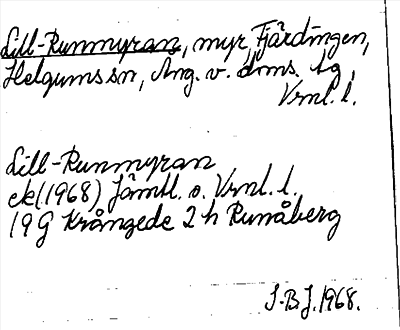 Lill-Runmyran, myr, Fjärdingen,
Helgums sn, Ång. v. doms. tg.
Vrnl. l.
Lill-Runmyran
ek(1968) Jämtl. o. Vrnl. l.
19G Krångede 2h Runåberg
J.B.J. 1968.